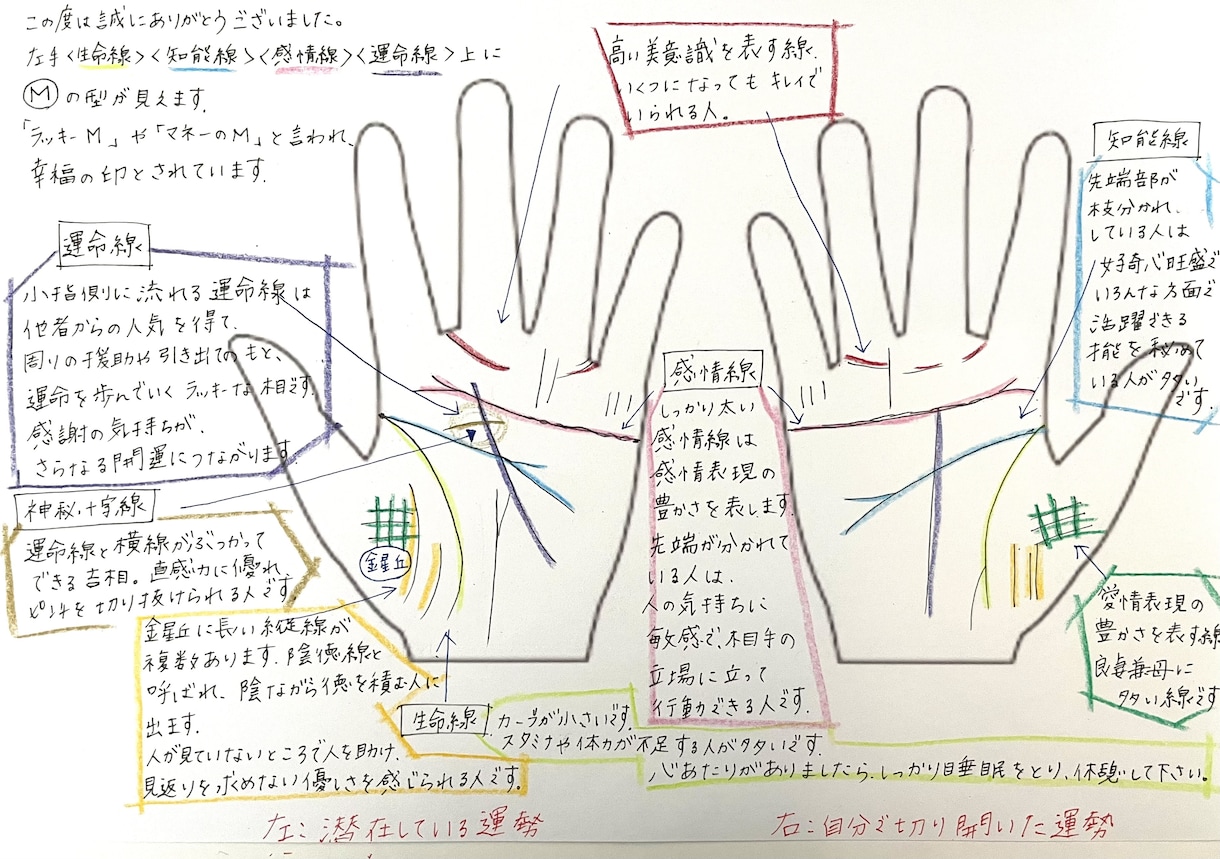 この度は誠にありがとうございました。
左手<生命線><知能線><感情線><運命線>上に
Mの型が見えます。
「ラッキーM」や「マネーのM」と言われ、
幸福の印とされています。
高い美意識を表す線。
いくつになってもキレイで
いられる人。
知能線
先端部が
枝分かれ、
している人は
好奇心旺盛で
いろんな方面で
活躍できる
才能を秘めて
いる人が多い
です。
運命線
小指側に流れる運命線は
他者からの人気を得て、
周りの援助や引き出てのもと、
運命を歩んでいくラッキーな相です。
感謝の気持ちが、
さらなる開運につながります。
神秘十字線
運命線と横線がぶつかって
できる吉相。直感力に優れ、
ピンチを切り抜けられる人です。
金星丘
金星丘に長い縦線が
複数あります。陰徳線と
呼ばれ、陰ながら徳を積む人に
出ます。
人が見ていないところで人を助け、
見返りを求めない優しさを感じられる人です。
感情線
しっかり太い
感情線は
感情表現の
豊かさを表します。
先端が分かれて
いる人は、
人の気持ちに
敏感で、相手の
立場に立って
行動できる人です。
愛情表現の
豊かさを表す線
良妻兼母に
多い線です
生命線
カーブが小さいです。
スタミナや体力が不足する人が多いです。
心あたりがありましたら、しっかり睡眠をとり、休憩して下さい。
左:潜在している運勢
右:自分で切り開いた運勢